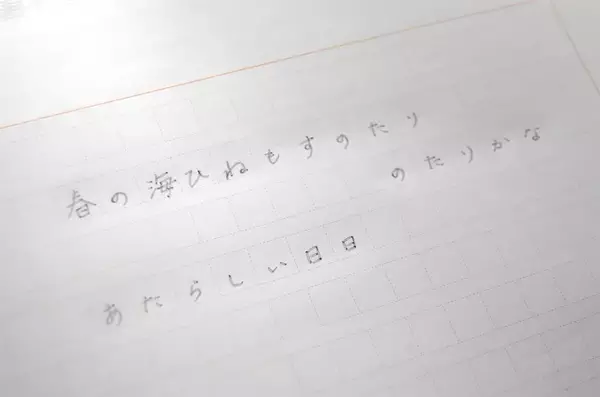 春の海ひねもすのたり
のたりかな
あたらしい日日